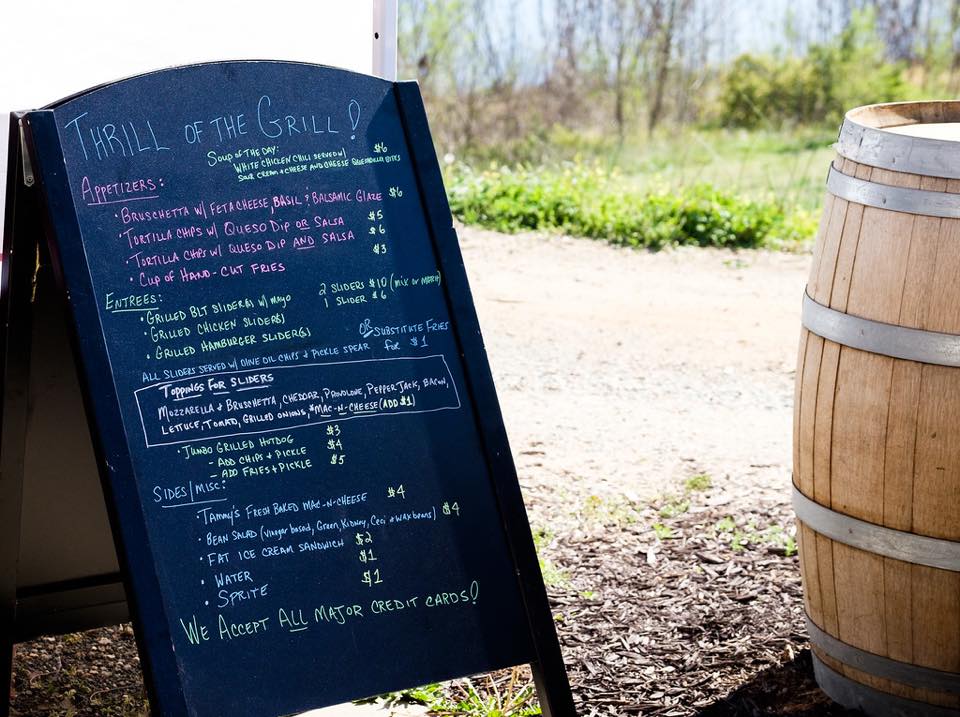 THRILL OF THE GRILL!
SOUP OF THE DAY: $6
WHITE CHICKEN CHILI SERVED W/
SOUR CREAM & CHEESE AND CHEESE QUESADILLA BITES
APPETIZERS:
• BRUSCHETTA W/ FETA CHEESE, BASIL & BALSAMIC GLAZE $6
• TORTILLA CHIPS W/ QUESO DIP OR SALSA $5
• TORTILLA CHIPS W/ QUESO DIP AND SALSA $6
• CUP OF HAND-CUT FRIES $3
ENTREES: 2 SLIDERS $10 (MIX OR MATCH)
• GRILLED BLT SLIDER(S) W/ MAYO 1 SLIDER $6
• GRILLED CHICKEN SLIDER(S)
• GRILLED HAMBURGER SLIDER(S) OR SUBSTITUTE FRIES
ALL SLIDERS SERVED W/ OLIVE OIL CHIPS & PICKLE SPEAR for $1
TOPPINGS FOR SLIDERS
MOZZARELLA & BRUSCHETTA, CHEDDAR, PROVOLONE, PEPPER JACK, BACON,
LETTUCE, TOMATO, GRILLED ONIONS, *MAC-N-CHEESE (ADD $1)
• JUMBO GRILLED HOTDOG $3
- ADD CHIPS & PICKLE $4
- ADD FRIES & PICKLE $5
SIDES/MISC:
• TAMMY'S FRESH BAKED MAC-N-CHEESE $4
• BEAN SALAD (Vinegar based, Green, Kidney, Ceci & Wax beans) $4
• FAT ICE CREAM SANDWICH $2
• WATER $1
• SPRITE $1
WE ACCEPT ALL MAJOR CREDIT CARDS!